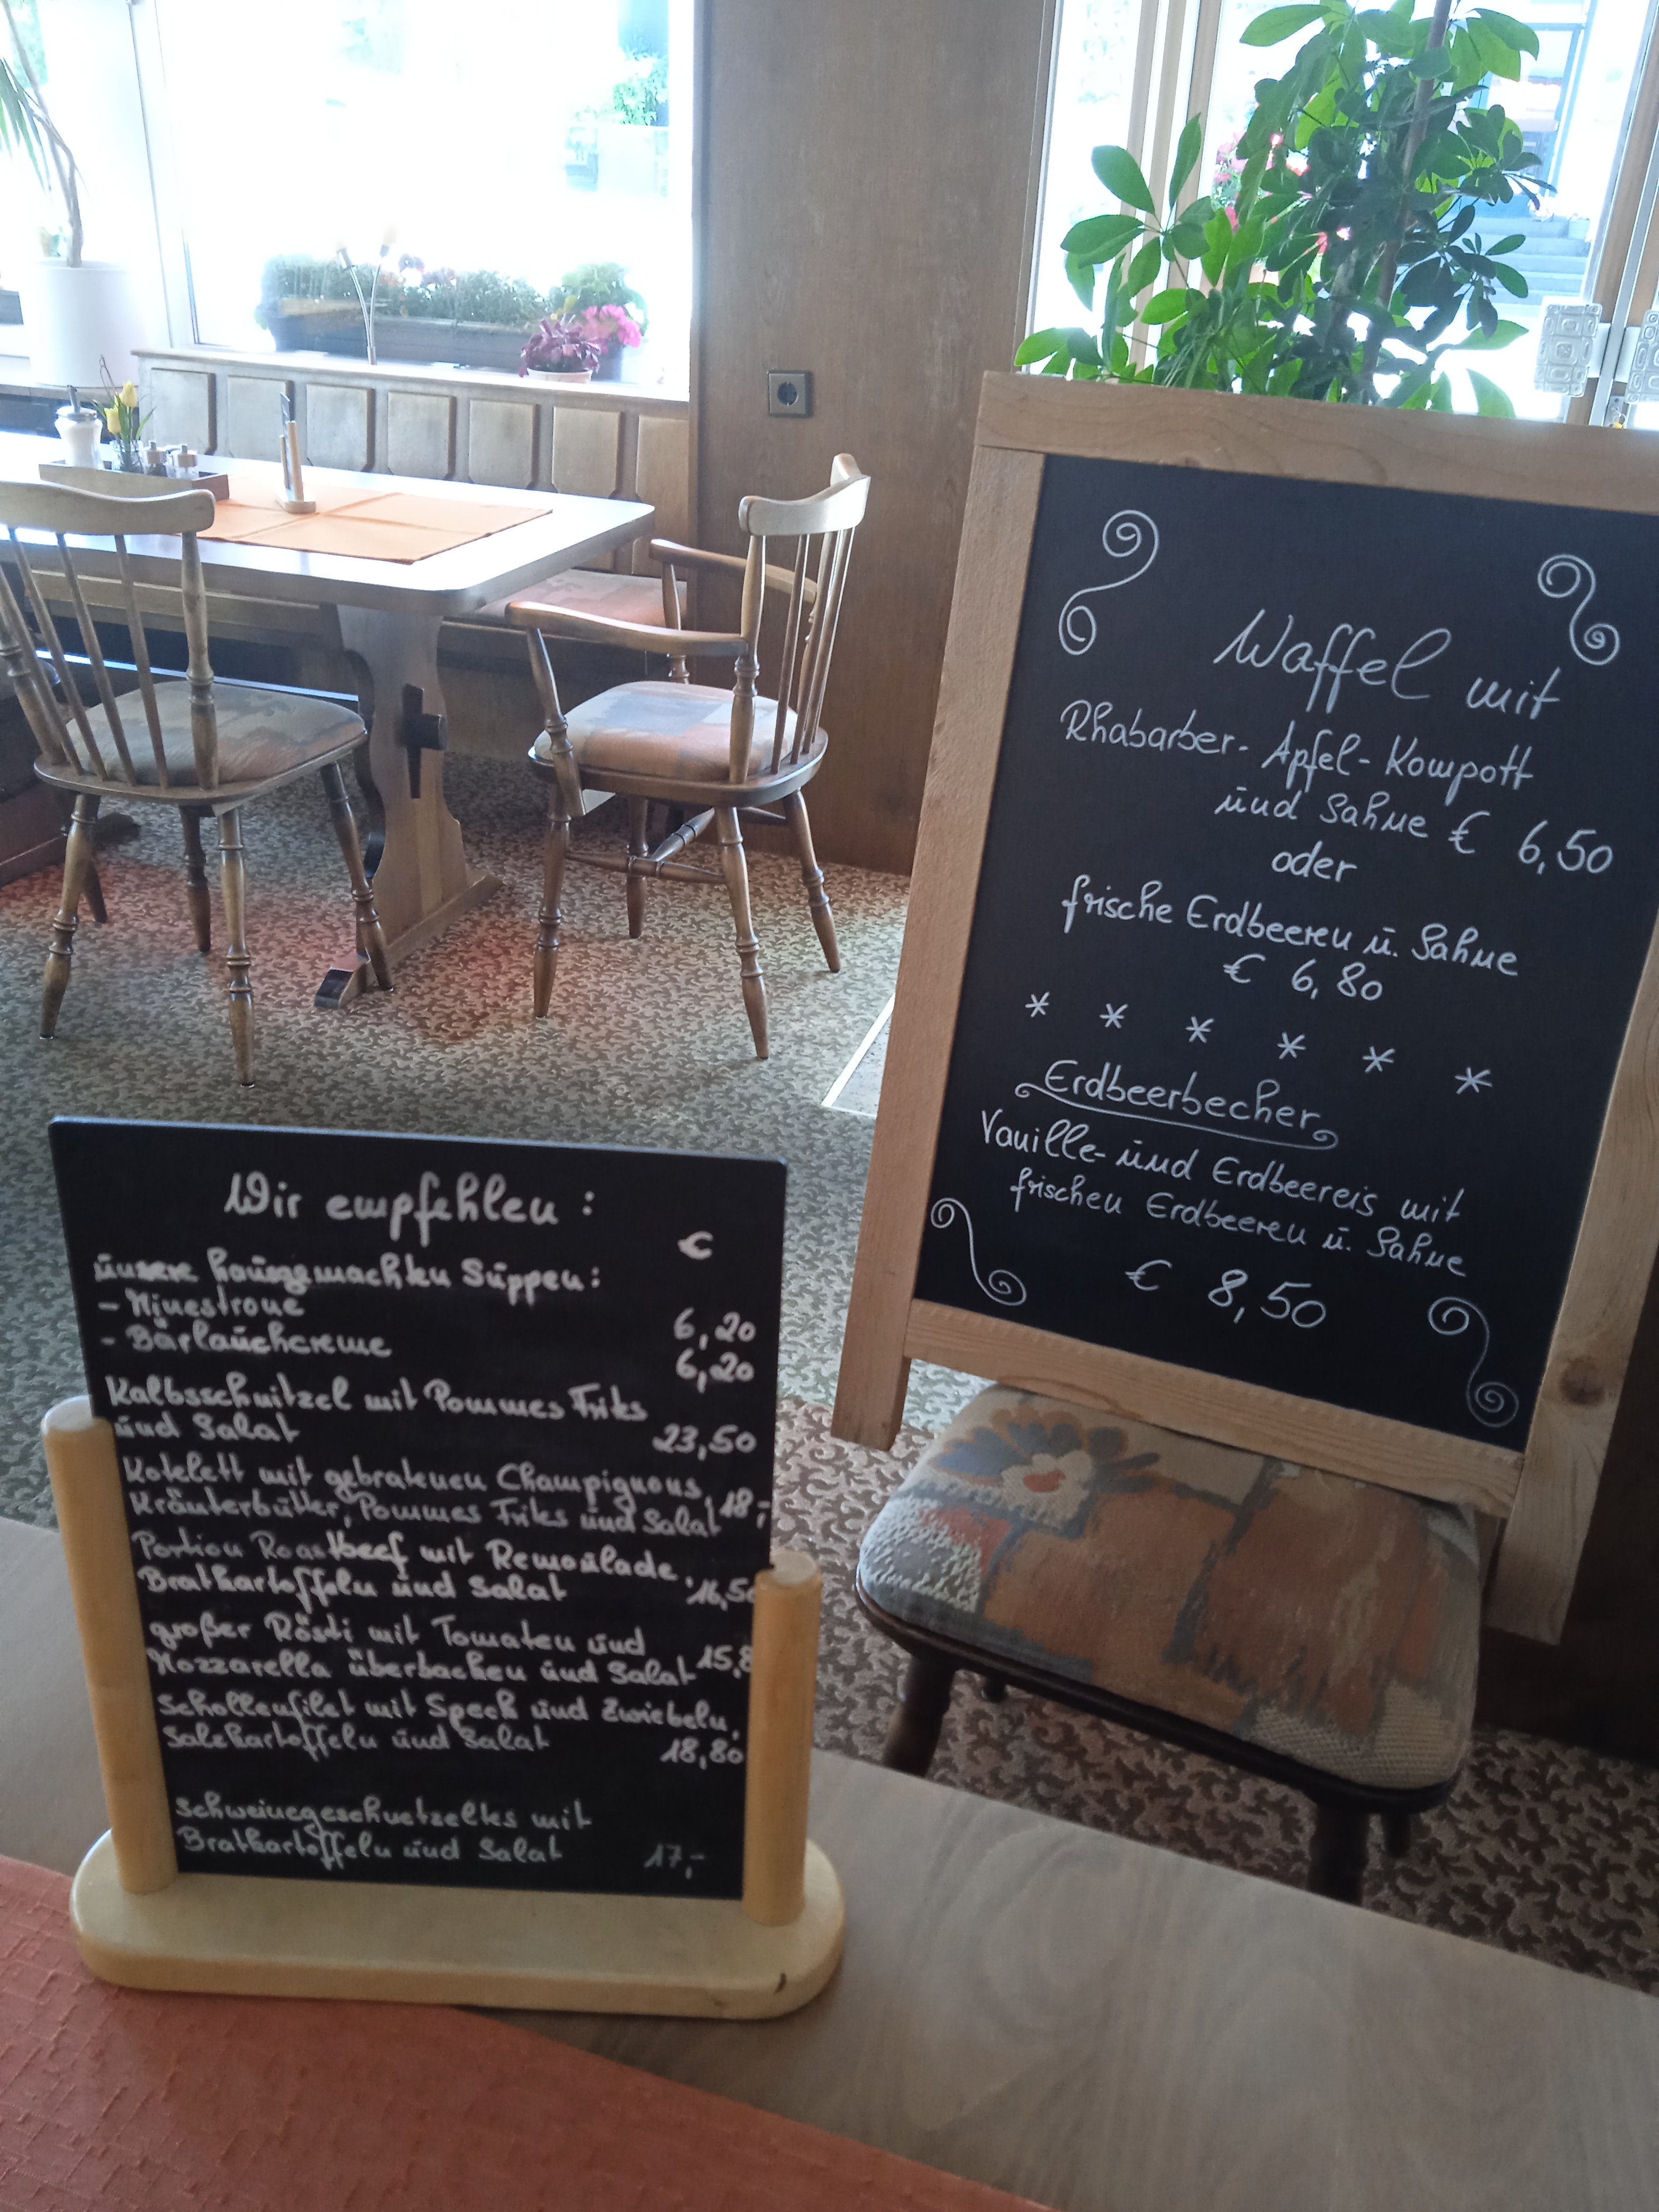 Wir empfehlen:
€
unsere hausgemachten Suppen:
- Minestrone 6,20
- Bärlauchcreme 6,20
Kalbsschnitzel mit Pommes Frites
und Salat 23,50
Kotelett mit gebratenen Champignons,
Kräuterbutter, Pommes Frites und Salat 18,-
Portion Roastbeef mit Remoulade,
Bratkartoffeln und Salat 16,50
großer Rösti mit Tomaten und
Mozzarella überbacken und Salat 15,8
Schollenfilet mit Speck und Zwiebeln,
Salzkartoffeln und Salat 18,80
Schweinegeschnetzeltes mit
Bratkartoffeln und Salat 17,-
Waffel mit
Rhabarber-Apfel-Kompott
und Sahne € 6,50
oder
frische Erdbeeren u. Sahne
€ 6,80
* * * * * *
Erdbeerbecher
Vanille- und Erdbeereis mit
frischen Erdbeeren u. Sahne
€ 8,50